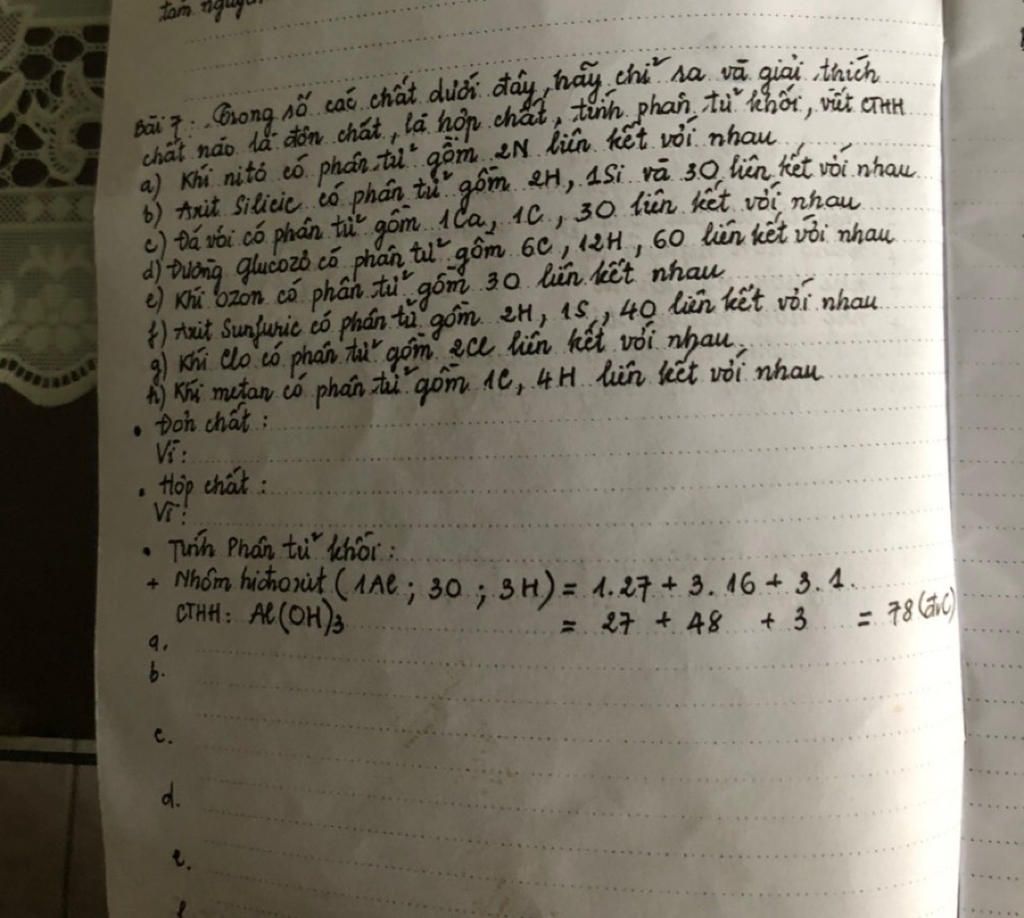 tâm nguyên
Bài 7: Trong số các chất dưới đây, hãy chỉ ra và giải thích
chất nào là đơn chất, là hợp chất, tính phân tử khối, viết CTHH
a) Khí nitơ có phân tử gồm 2N liên kết với nhau
b) Axit Silicic có phân tử gồm 2H, 1Si và 3O liên kết với nhau
c) Đá vôi có phân tử gồm 1Ca, 1C, 3O liên kết với nhau
d) Đường glucozơ có phân tử gồm 6C, 12H, 6O liên kết với nhau
e) Khí ozon có phân tử gồm 3O liên kết nhau
f) Axit Sunfuric có phân tử gồm 2H, 1S, 4O liên kết với nhau
g) Khí Clo có phân tử gồm 2Cl liên kết với nhau.
h) Khí metan có phân tử gồm 1C, 4H liên kết với nhau
• Đơn chất :
Vì :
• Hợp chất :
Vì :
• Tính Phân tử khối :
+ Nhôm hiđroxit (1Al ; 3O ; 3H) = 1.27 + 3.16 + 3.1.
CTHH: Al(OH)3 = 27 + 48 + 3 = 78 (đvC)
a.
b.
c.
d.
e.
f